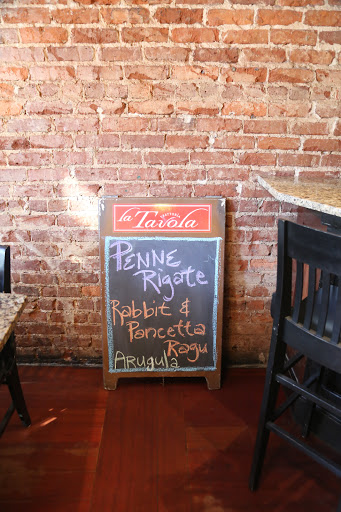 la Tavola
TRATTORIA
PENNE
Rigate
Rabbit &
Pancetta
Ragu
ARUGULA